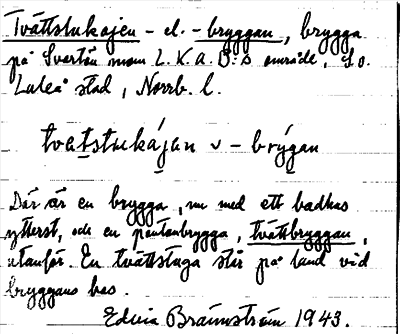 Tvättstukajen - el. - bryggan, brygga
på Svartön inom L.K.A.B:s område, S o.
Luleå stad, Norrb. l.
tvatstukájan v - brýgan
Där är en brygga, nu med ett badhus
ytterst, och en pontonbrygga, tvättbryggan,
utanför. En tvättstuga står på land vid
bryggans bas.
Edvin Brännström 1943.